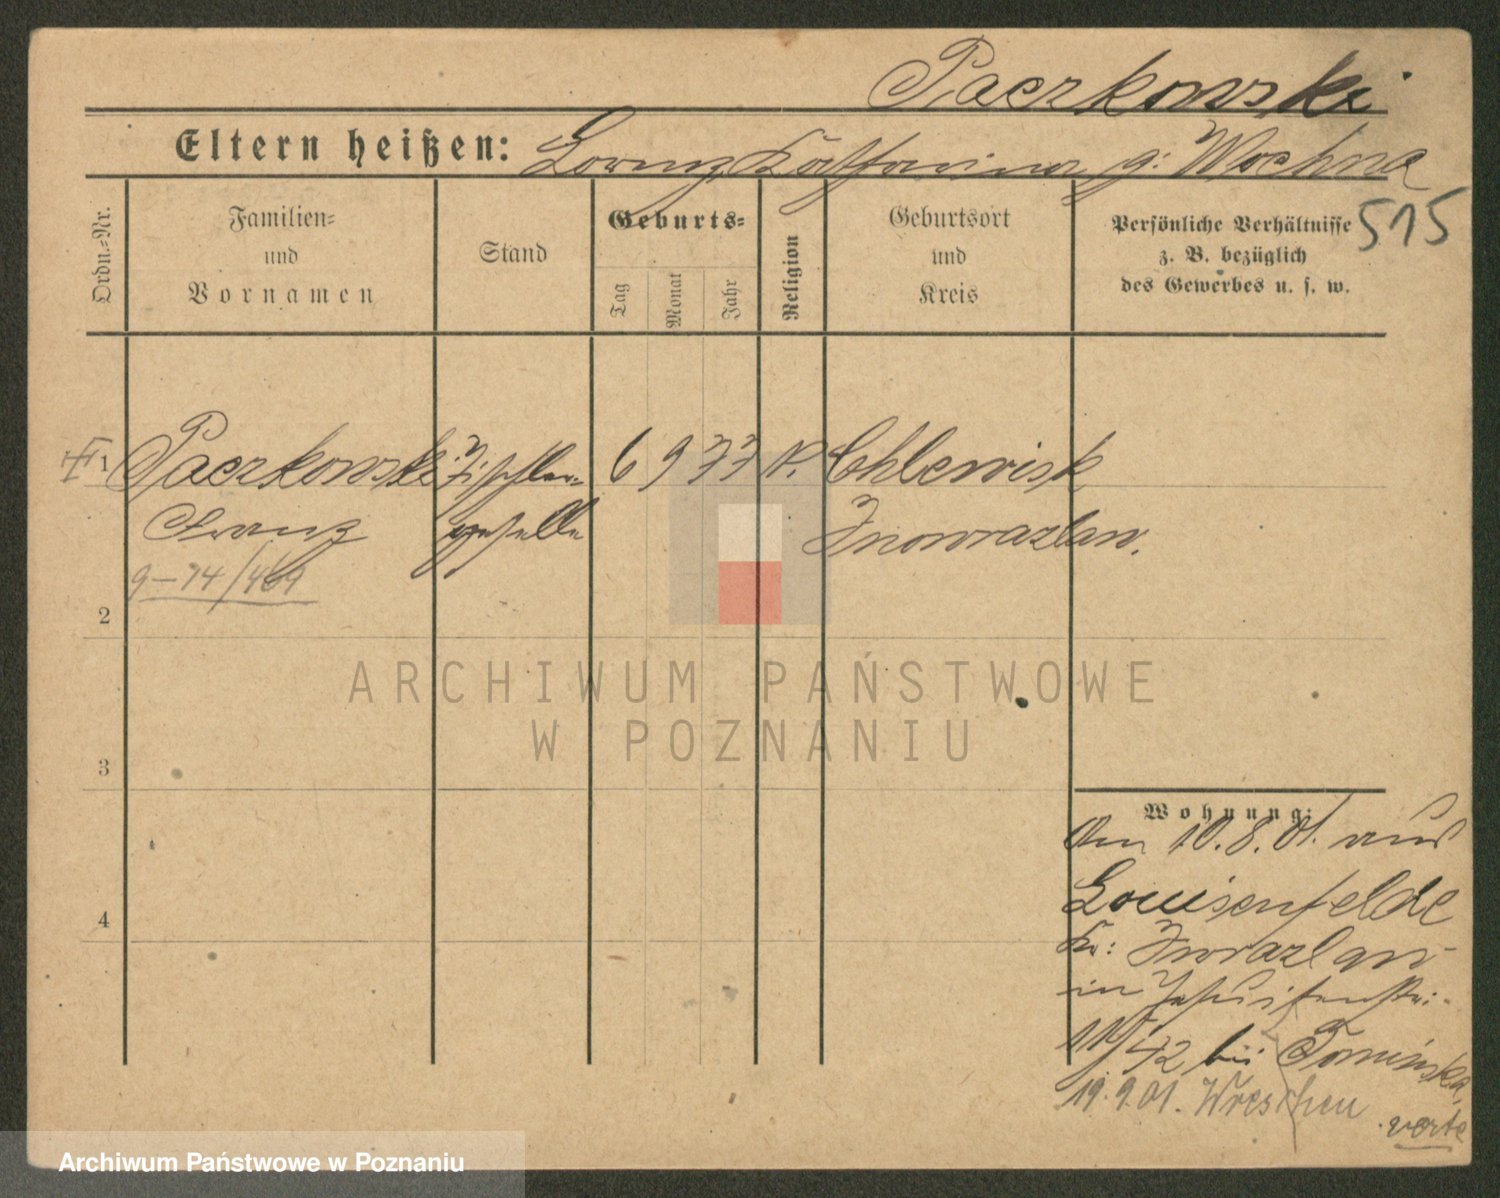 Paczkowski
Eltern heißen: Lorenz Katharina g: Wochna
515
Ordn.-Nr.
Familien-
und
Vornamen
Stand
Geburts-
Tag
Monat
Jahr
Religion
Geburtsort
und
Kreis
Persönliche Verhältnisse
z. B. bezüglich
des Gewerbes u. s. w.
1 Paczkowski Tischler- 6 9 77 k. Chlewisk
Franz geselle Inowrazlaw.
9-74/469
2
ARCHIWUM PAŃSTWOWE
W POZNANIU
3
Wohnung:
Am 10.8.01. aus
Louisenfelde
4
Kr: Inowrazlaw
in Jesuitenstr:
11/12 bei Tomińska,
19.9.01. Wreschen
verte
Archiwum Państwowe w Poznaniu